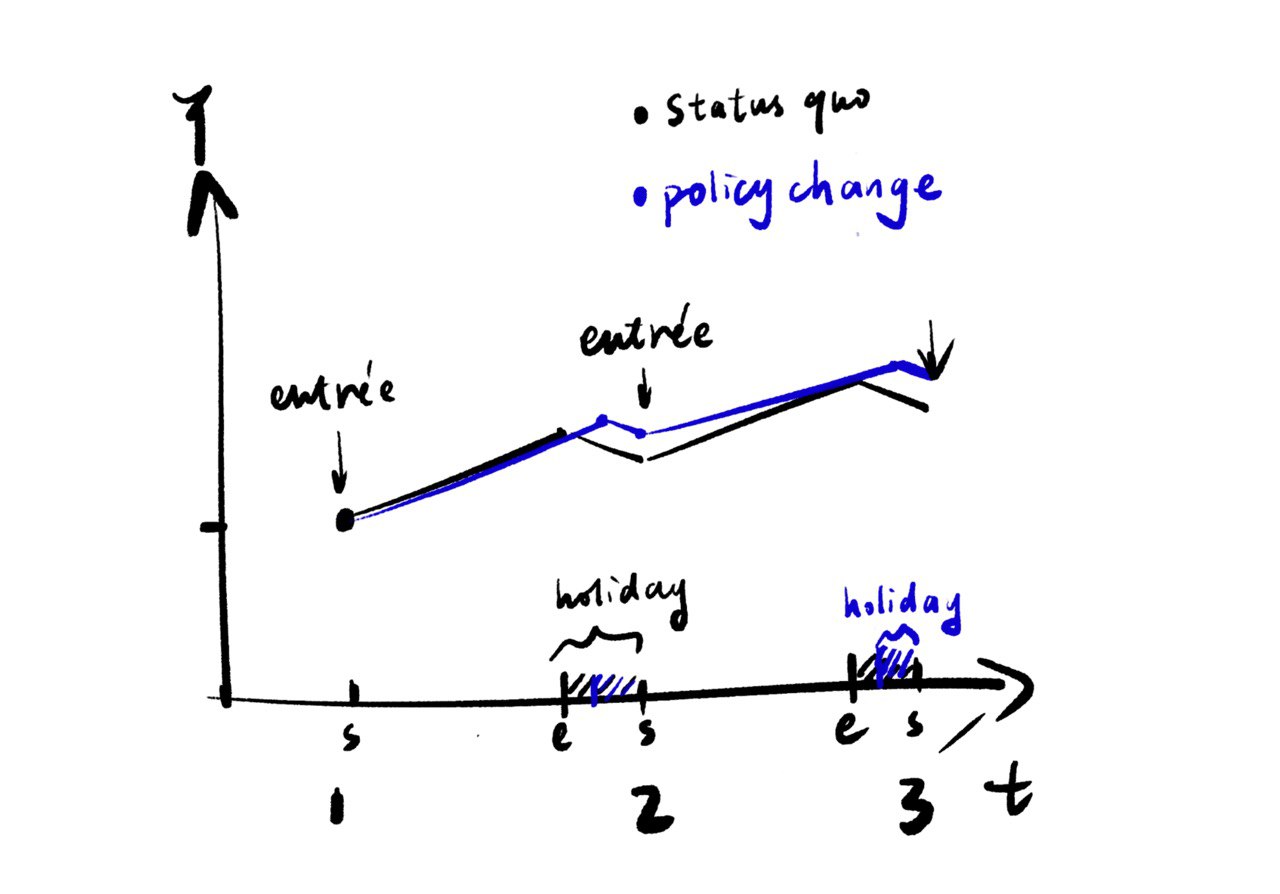 Y
• Status quo
• policy change
entrée
entrée
holiday
holiday
s e s e s
1 2 3 t